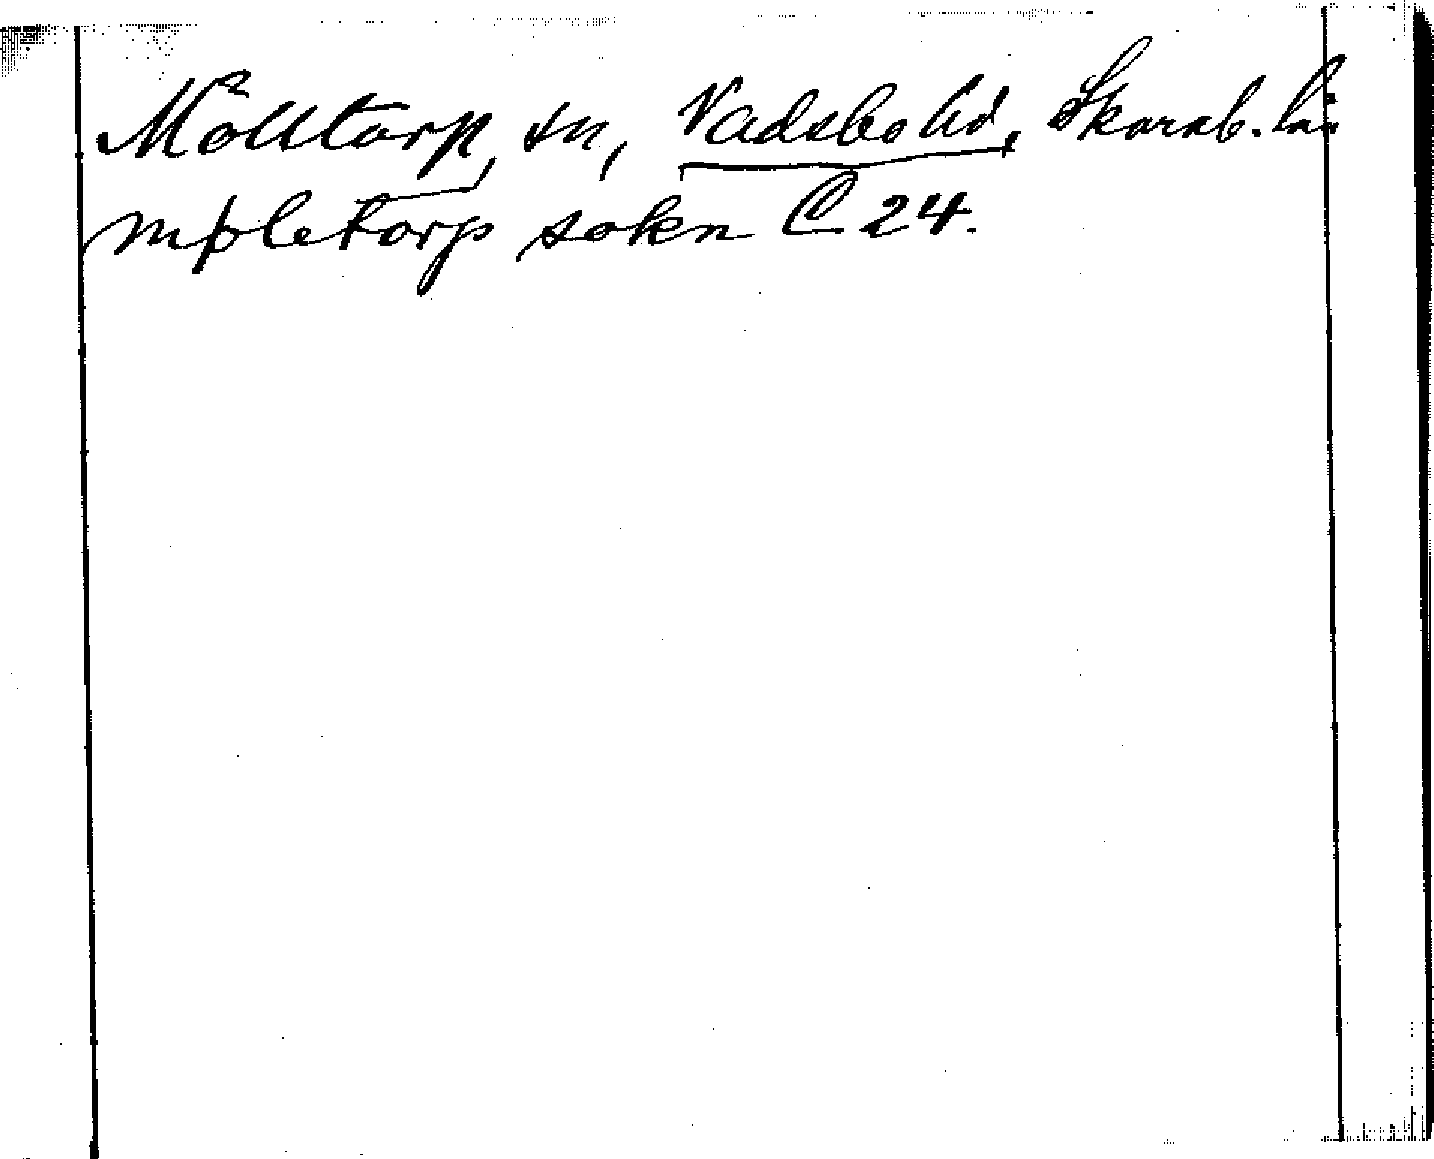 Mölltorp, sn, Vadsbo hd, Skarab. län
mpletorp sokn C 24.